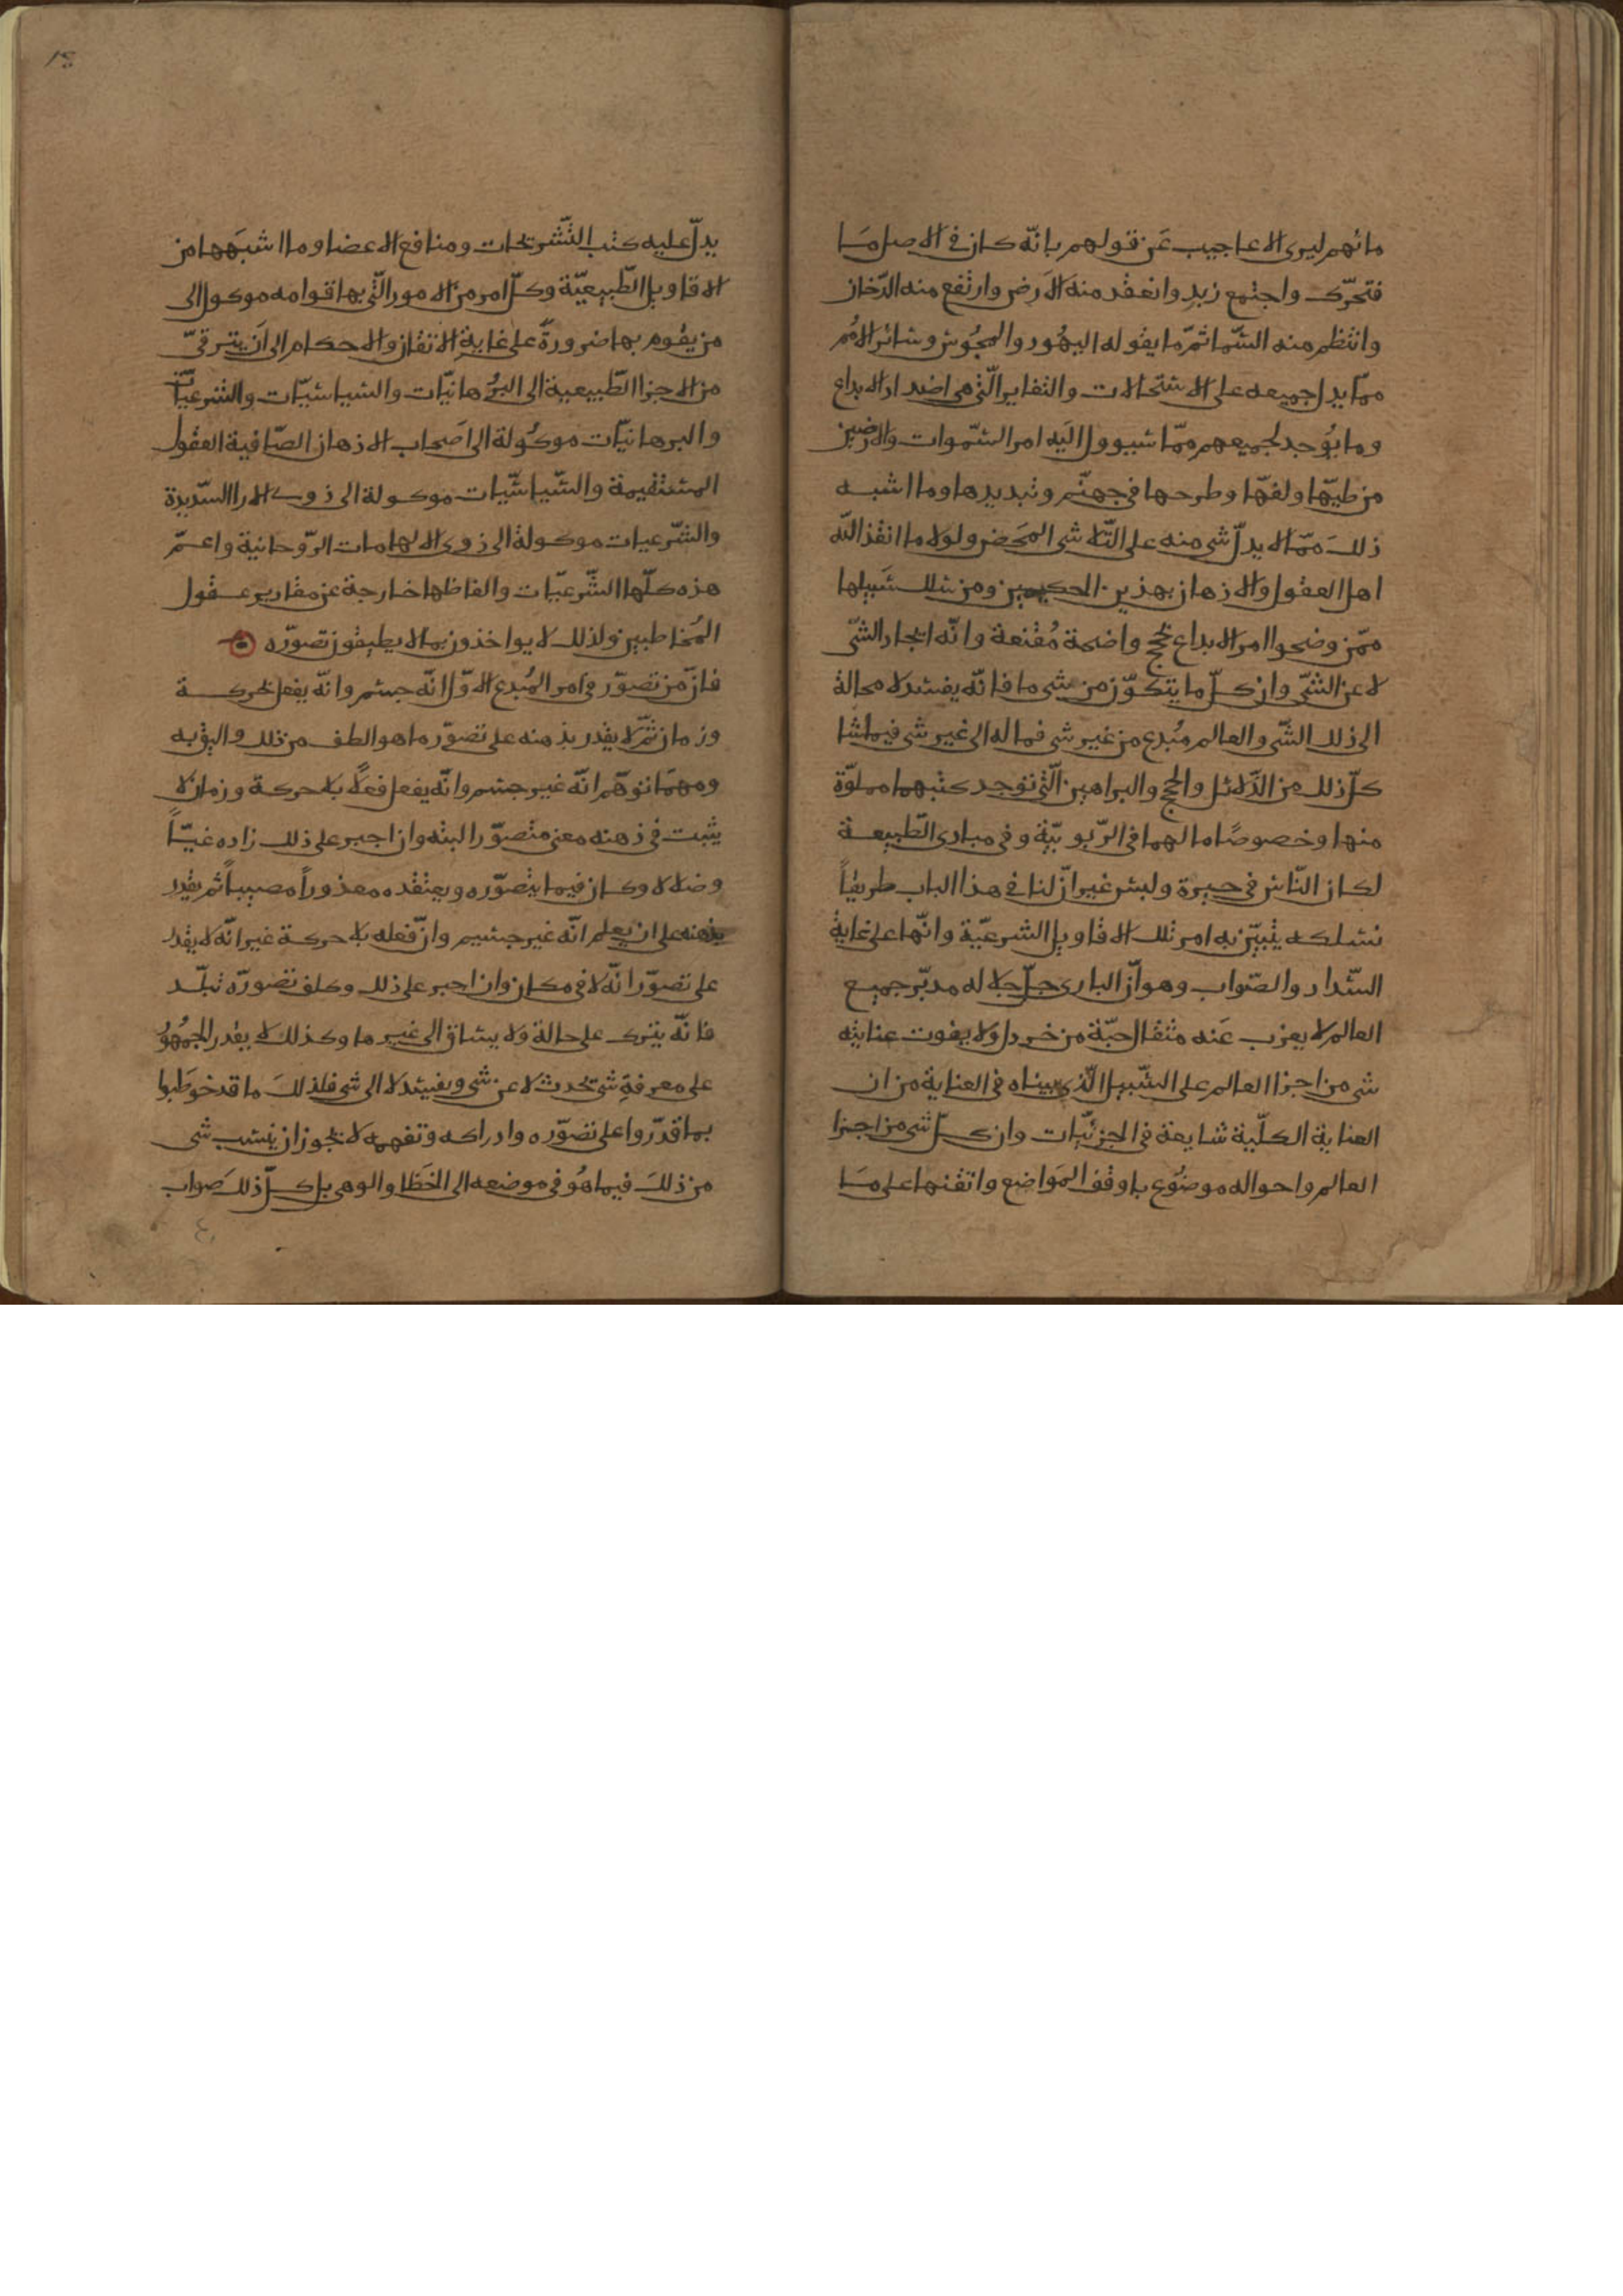 مانهم ليرى الاعاجيب عن قولهم بانّه كان في الاصل مَا
فتحرّك واجتمع زبد وانعقد منه الارض وارتفع منه الدّخان
وانتظم منه السّما ثمّ ما يقوله اليهُود والمجُوس وسائر الامُم
ممّا يدل جميعه على الاستحالات والتغاير الّتي هي اضداد الابداع
وما يُوجد لجميعهم ممّا سيوول اليَه امر السّموات والارضين
من طيّها ولفّها وطرحها في جهنّم وتبديدها وما اشبه
ذلكَ ممّا لا يدلّ شي منه على التّلاشي المحَض ولولا ما انقذ الله
اهل العقول والاذهان بهذين الحكيمين ومن سلك سَبيلها
ممّن وضحوا امر الابداع بحجج واضحة مُقنعة وانّه ايجاد الشّي
لا عن الشّي وان كلّ ما يتكوّن من شي ما فانّه يفسد لا محالة
الى ذلك الشّي والعالم مُبدع من غير شي فماله الى غير شي فيما شا
كلّ ذلك من الدّلائل والحجج والبراهين الّتي توجد كتبهما مملوّة
منها وخصوصًا ما لهما في الرّبوبيّة وفي مبادي الطّبيعة
لكان النّاس في حيرة ولبس غير انّ لنا في هذا الباب طريقاً
نسلكه يتبيّن به امر تلك الاقاويل الشرعيّة وانّها على غاية
السّداد والصّواب وهو انّ الباري جلّ جلاله مدبّر جميع
العالم لا يعزب عَنه مثقال حبّة من خردل وَلا يفوت عنايته
شي من اجزا العالم على السّبيل الّذي بيناه في العناية من ان
العناية الكلّية شايعة في الجزئيّات وان كلّ شي من اجزا
العالم واحواله موضُوع باوفق المَواضع واتقنها على مَا
١٤
يدلّ عليه كتب التّشريحات ومنافع الاعضا وما اشبَهها من
الاقاويل الطّبيعيّة وكلّ امر من الامور الّتي بها قوامه موكول الى
من يقُوم بها ضرورةً على غاية الاتقان والاحكام الى ان يترقىّ
من الاجزا الطّبيعية الى البُرهانيّات والسياسيّات والشرعيّات
والبرهانيّات موكوُلة الى اصَحاب الاذهان الصّافية العقول
المستقيمة والسّياسّيات موكولة الى ذوي الارا السّديدة
والشّرعيات موكولة الى ذوي الالهامات الرّوحانية واعمّ
هذه كلّها الشّرعيّات والفاظها خارجة عن مقادير عقول
المُخاطبين ولذلك لا يواخذون بما لا يطيقون تصوّره
فانّ من تصوّر في امر المُبدع الاوّل انّه جسم وانّه يفعل بحركة
وزمان ثمّ لا يقدر بذهنه على تصوّر ما هو الطف من ذلك واليق به
ومهمَا توَهّم انّه غير جسم وانّه يفعل فعلاً بلا حركة وزمان لا
يثبت في ذهنه معنى متصوّر البته وان اجبر على ذلك زاده غيّاً
وضلالا وكان فيما يتصوّره ويعتقده معذوراً مصيباً ثم يقدر
بذهنه على ان يعلم انّه غير جسيم وانّ فعله بلا حركة غير انّه لا يقدر
على تصوّر انّه لا في مكان وان اجبر على ذلك وكلف تصورّه تبلّد
فانّه يترك على حالة وَلا يساق الى غير ما وكذلكَ لا يقدر الجمهُورُ
على معرفةِ شي يحدث لا عن شي ويفسد لا الى شي فلذلكَ ما قد خوطَبوا
بما قدّروا على تصوّره وادراكه وتفهمه لا يجوز ان ينسب شي
من ذلكَ فيما هُو في موضعه الى الخَطا والوهي بل كلّ ذلكَ صواب